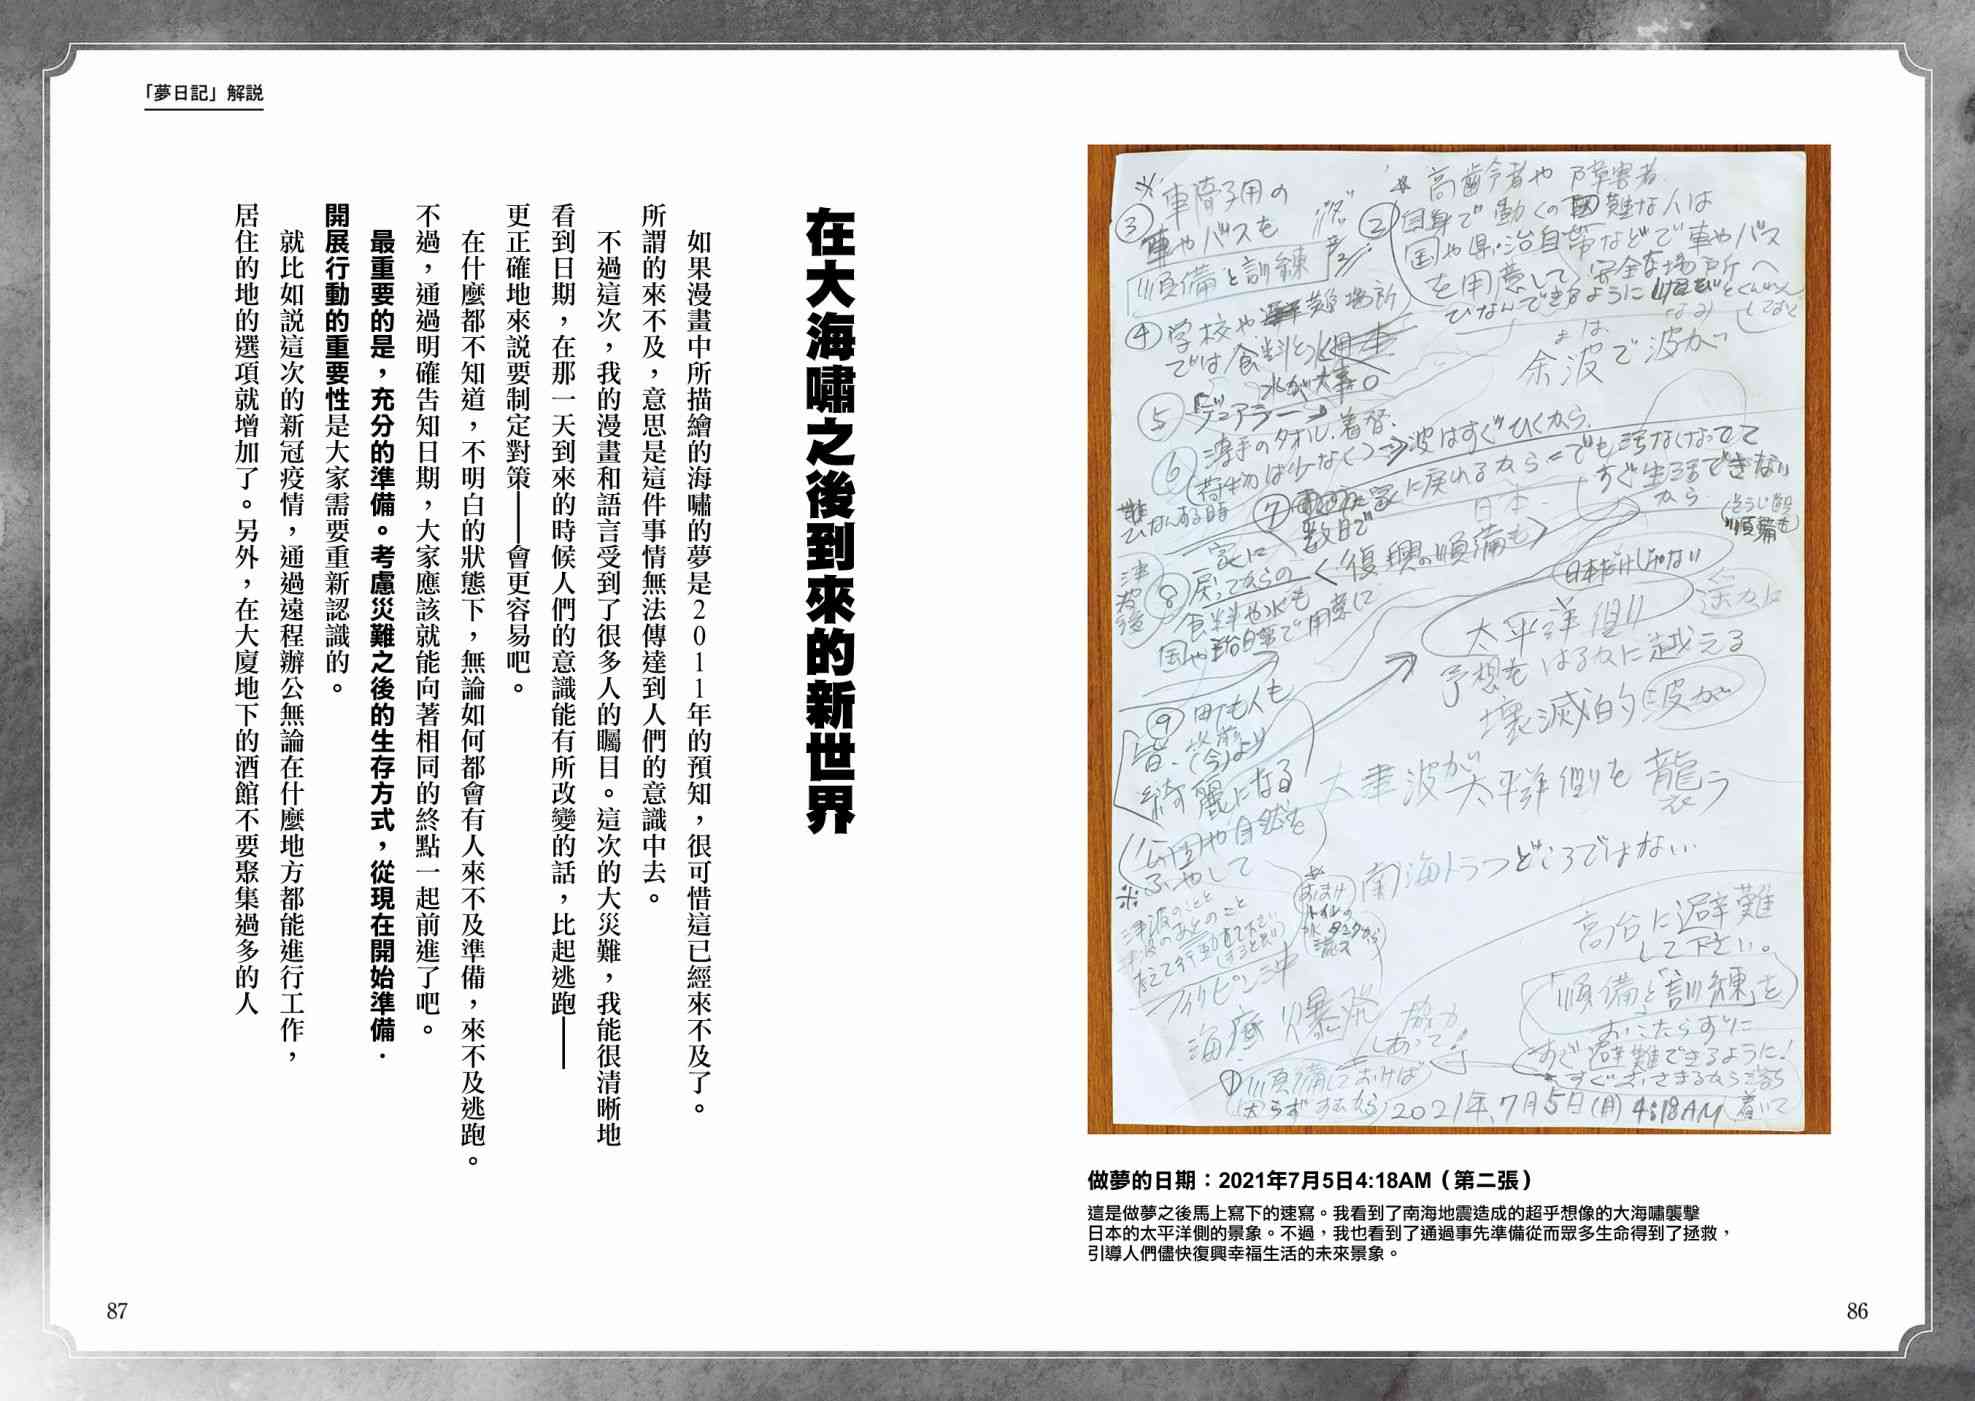 ※車椅子用の
③車やバスを
順備と訓練
※高齢者や障害者
②自身で動くの困難な人は
国や県・治自帯などで車やバス
を用意して安全な場所へ
ひなんできるように
④学校や避難場所
では食料と水
水が大事。
余波で波が
⑤デュアラー
⑥薄手のタオル、着替、
(荷物は少なく)
⇒波はすぐひくから、
でも汚なくなってて
すぐ生活できない
から
難
ひなんする時
⑦
に戻れるから
数日で
日本
順備も
津波後
⑧家に
戻ってからの
食料や水も
国や治自帯で用意して
<復興の順備も>
日本だけじゃない
太平洋側
予想をはるかに越える
壊滅的波が
⑨田でも人も
皆、以前(今)より
綺麗になる
公園や自然を
ふやして
大津波が太平洋側を襲う
南海トラフどころではない
※
津波のことと
津波のあとのこと
おまけ
トイレの
水タンクから
流す
フィリピン沖
海底爆発
高台に避難
して下さい。
「順備と「訓練」を
おこたらずに
すぐ避難できるように!
すぐおさまるから落ち
着いて
協力
しあって
①順備しておけば
2021年7月5日(月)4:18AM
做夢的日期：2021年7月5日4:18AM（第二張）
這是做夢之後馬上寫下的速寫。我看到了南海地震造成的超乎想像的大海嘯襲擊
日本的太平洋側的景象。不過，我也看到了通過事先準備從而眾多生命得到了拯救，
引導人們儘快復興幸福生活的未來景象。
86
「夢日記」解説
在大海嘯之後到來的新世界
如果漫畫中所描繪的海嘯的夢是2011年的預知，很可惜這已經來不及了。
所謂的來不及，意思是這件事情無法傳達到人們的意識中去。
不過這次，我的漫畫和語言受到了很多人的矚目。這次的大災難，我能很清晰地
看到日期，在那一天到來的時候人們的意識能有所改變的話，比起逃跑——
更正確地來說要制定對策——會更容易吧。
在什麼都不知道，不明白的狀態下，無論如何都會有人來不及準備，來不及逃跑。
不過，通過明確告知日期，大家應該就能向著相同的終點一起前進了吧。
最重要的是，充分的準備。考慮災難之後的生存方式，從現在開始準備．
開展行動的重要性是大家需要重新認識的。
就比如説這次的新冠疫情，通過遠程辦公無論在什麼地方都能進行工作，
居住的地的選項就增加了。另外，在大廈地下的酒館不要聚集過多的人
87